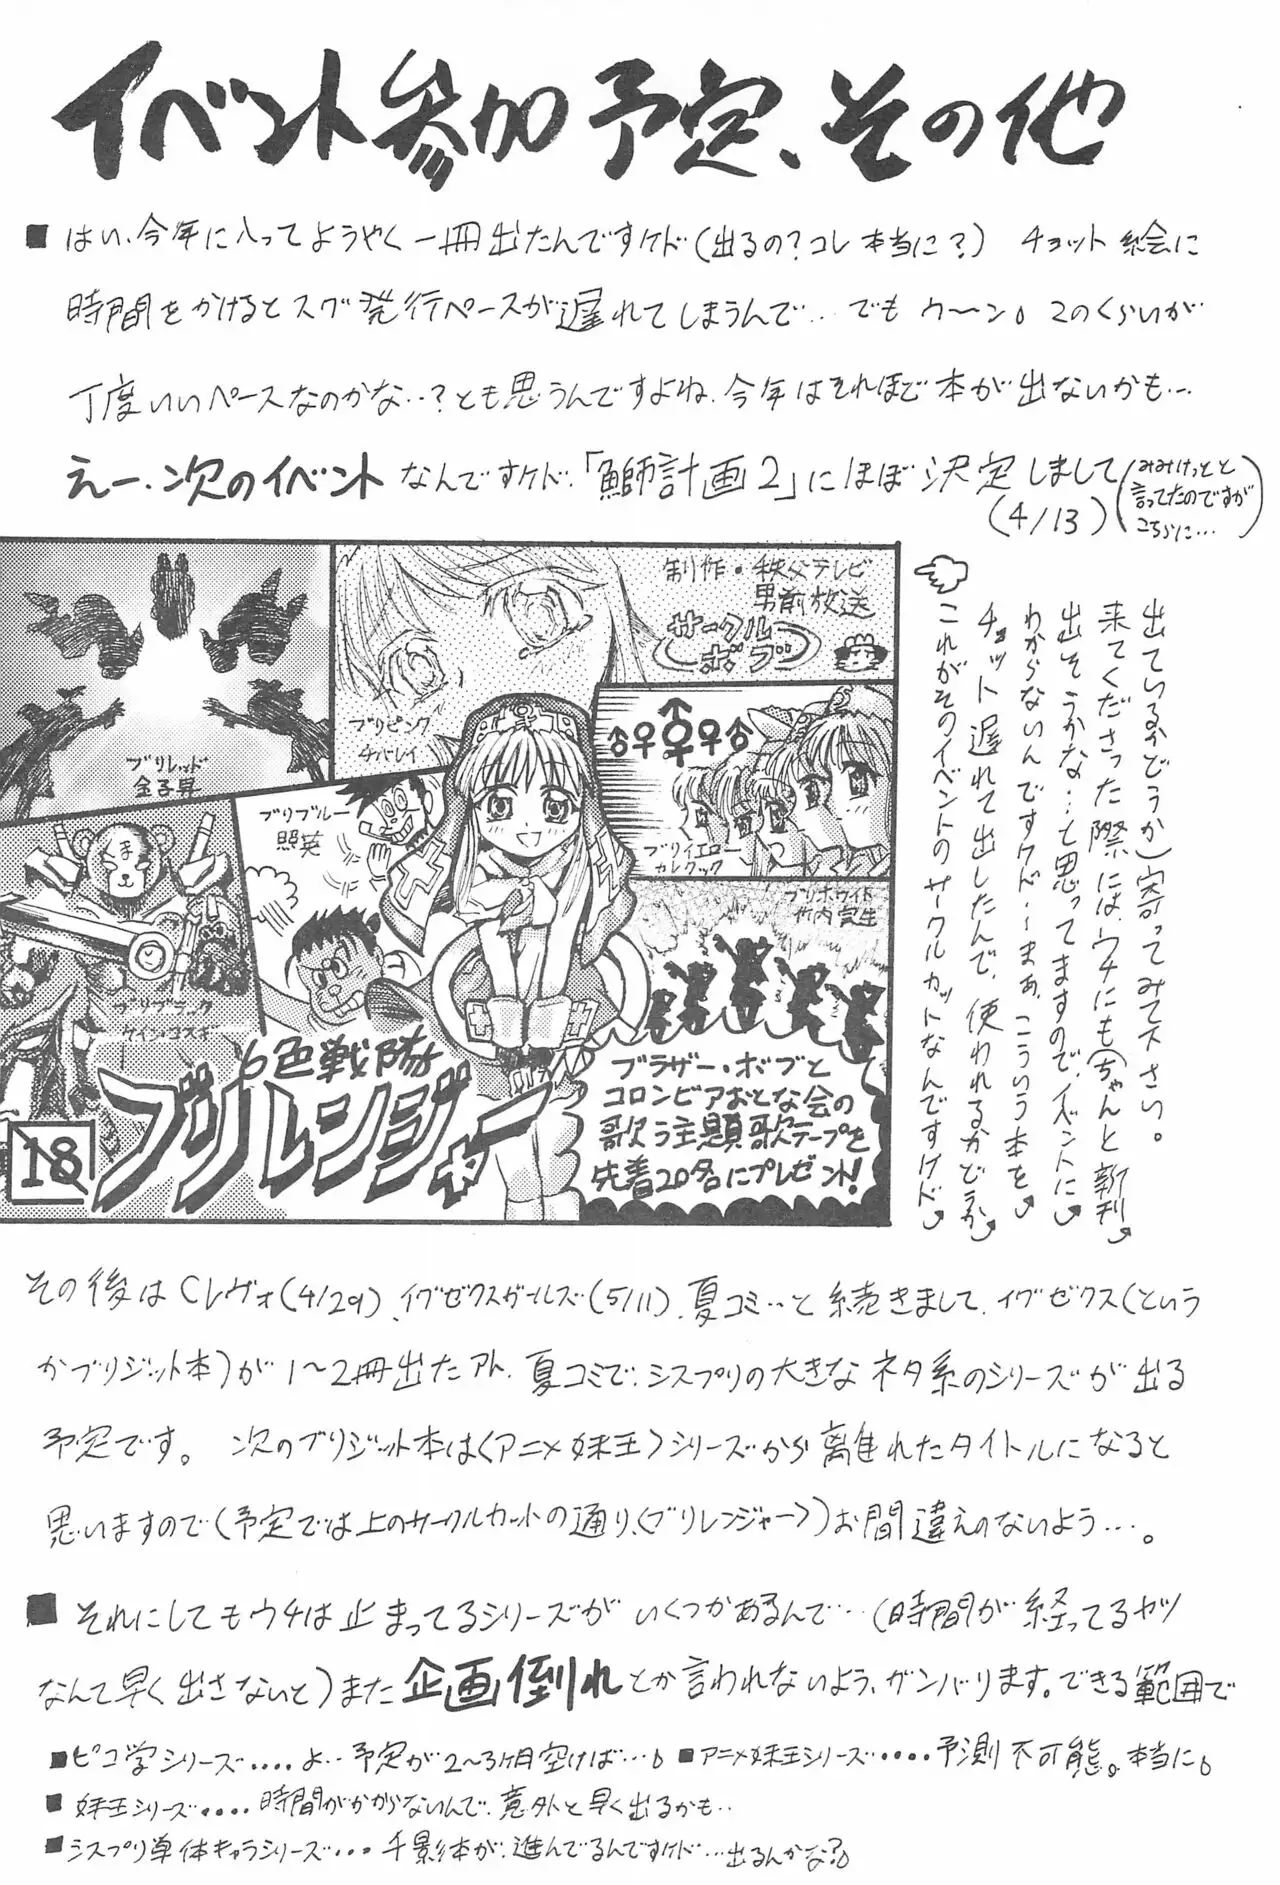 イベント参加予定、その他
■はい、今年に入ってようやく一冊出たんですケド(出るの?コレ本当に?) チョット絵に
時間をかけるとスグ発行ペースが遅れてしまうんで…でもウ〜ン。2のくらいが
丁度いいペースなのかな…?とも思うんですよね、今年はそれほど本が出ないかも…
えー、次のイベントなんですケド、「鰤計画2」にほぼ決定しまして
(4/13)
(みみけっとと
言ってたのですが
こちらに…)
出ているかどうか)寄ってみて下さい。
来てくださった際には、ウチにも(ちゃんと新刊
出そうかな…と思ってますので、イベントに
わからないんですケド…まぁ、こういう本を
チョット遅れて出したんで、使われるかどうか
これがそのイベントのサークルカットなんですけド
制作・秩父テレビ
男前放送
サークル
ボブ
ブリレッド
金子昇
ブリピンク
チバレイ
ブリブルー
照英
ブリイエロー
カレクック
ブリホワイト
竹内実生
ブリブラック
ケイン・コスギ
6色戦隊
ブリレンジャー
18
ブラザー・ボブと
コロンビアおとな会の
歌う主題歌テープを
先着20名にプレゼント!
その後はCレヴォ(4/29)、イグゼクスガールズ(5/11)、夏コミ…と続きまして、イグゼクス(という
かブリジット本)が1〜2冊出たアト、夏コミで、シスプリの大きなネタ系のシリーズが出る
予定です。 次のブリジット本は〈アニメ妹王〉シリーズから離れたタイトルになると
思いますので(予定では上のサークルカットの通り、〈ブリレンジャー〉)お間違えのないよう…。
■それにしてもウチは止まってるシリーズがいくつかあるんで…(時間が経ってるヤツ
なんて早く出さないと)また企画倒れとか言われないよう、ガンバります。できる範囲で
■ピコ学シリーズ….よ…予定が2〜3ヶ月空けば…。 ■アニメ妹王シリーズ‥‥予測不可能。本当に。
■妹王シリーズ‥‥時間がかからないんで、意外と早く出るかも…
■シスプリ単体キャラシリーズ…千影本が、進んでるんですケド…出るんかな?。